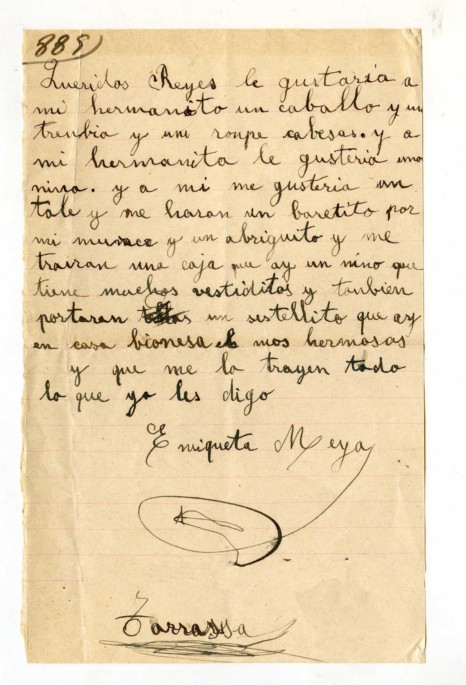 889
Queridos Reyes le gustaria a
mi hermanito un caballo y un
trenbia y una ronpe cabesas. y a
mi hermanita le gusteria una
nina. y a mi me gusteria un
tale y me haran un baretito por
mi y un abriguito y me
trairan una caja que ay un nino que
tiene muchos vestiditos y tanbien
portaran un sestellito que ay
en casa bionesa mos hermosas
y que me lo trayen todo
lo que yo les digo
Enriqueta Meya
Tarrassa